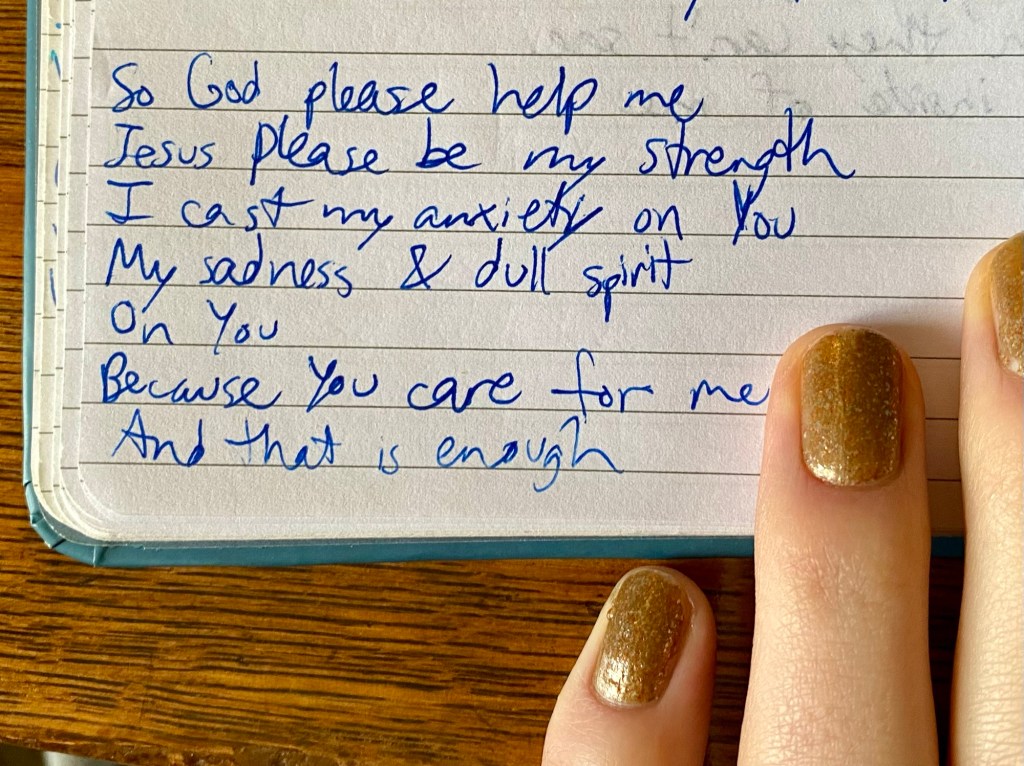 So God please help me
Jesus please be my strength
I cast my anxiety on You
My sadness & dull spirit
On You
Because You care for me
And that is enough